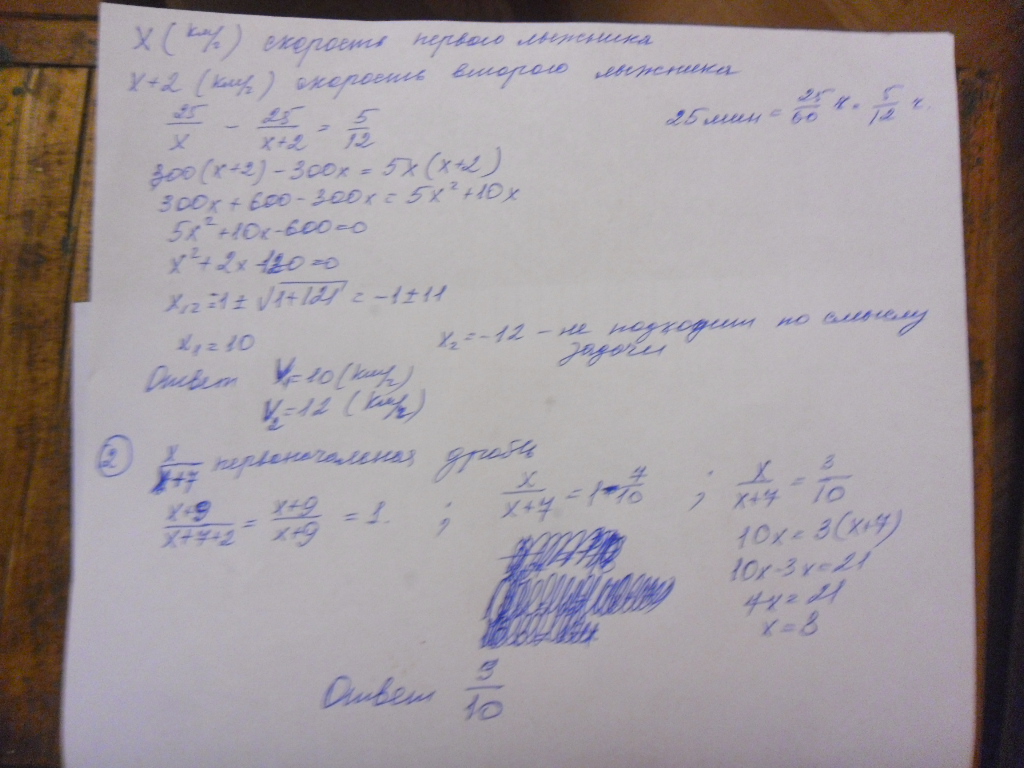 X (км/г) скорость первого лыжника
x+2 (км/г) скорость второго лыжника
25 мин = 25/60 ч. = 5/12 ч.
25/x - 25/(x+2) = 5/12
300(x+2) - 300x = 5x(x+2)
300x + 600 - 300x = 5x² + 10x
5x² + 10x - 600 = 0
x² + 2x - 120 = 0
x₁₂ = -1 ± √(1+121) = -1 ± 11
x₁ = 10
x₂ = -12 - не подходит по смыслу
задачи
Ответ V₁ = 10 (км/г)
V₂ = 12 (км/г)
② x/(x+7) первоначальная дробь
(x+9)/(x+7+2) = (x+9)/(x+9) = 1. ; x/(x+7) = 1 - 7/10 ; x/(x+7) = 3/10
10x = 3(x+7)
10x - 3x = 21
7x = 21
x = 3
Ответ 3/10